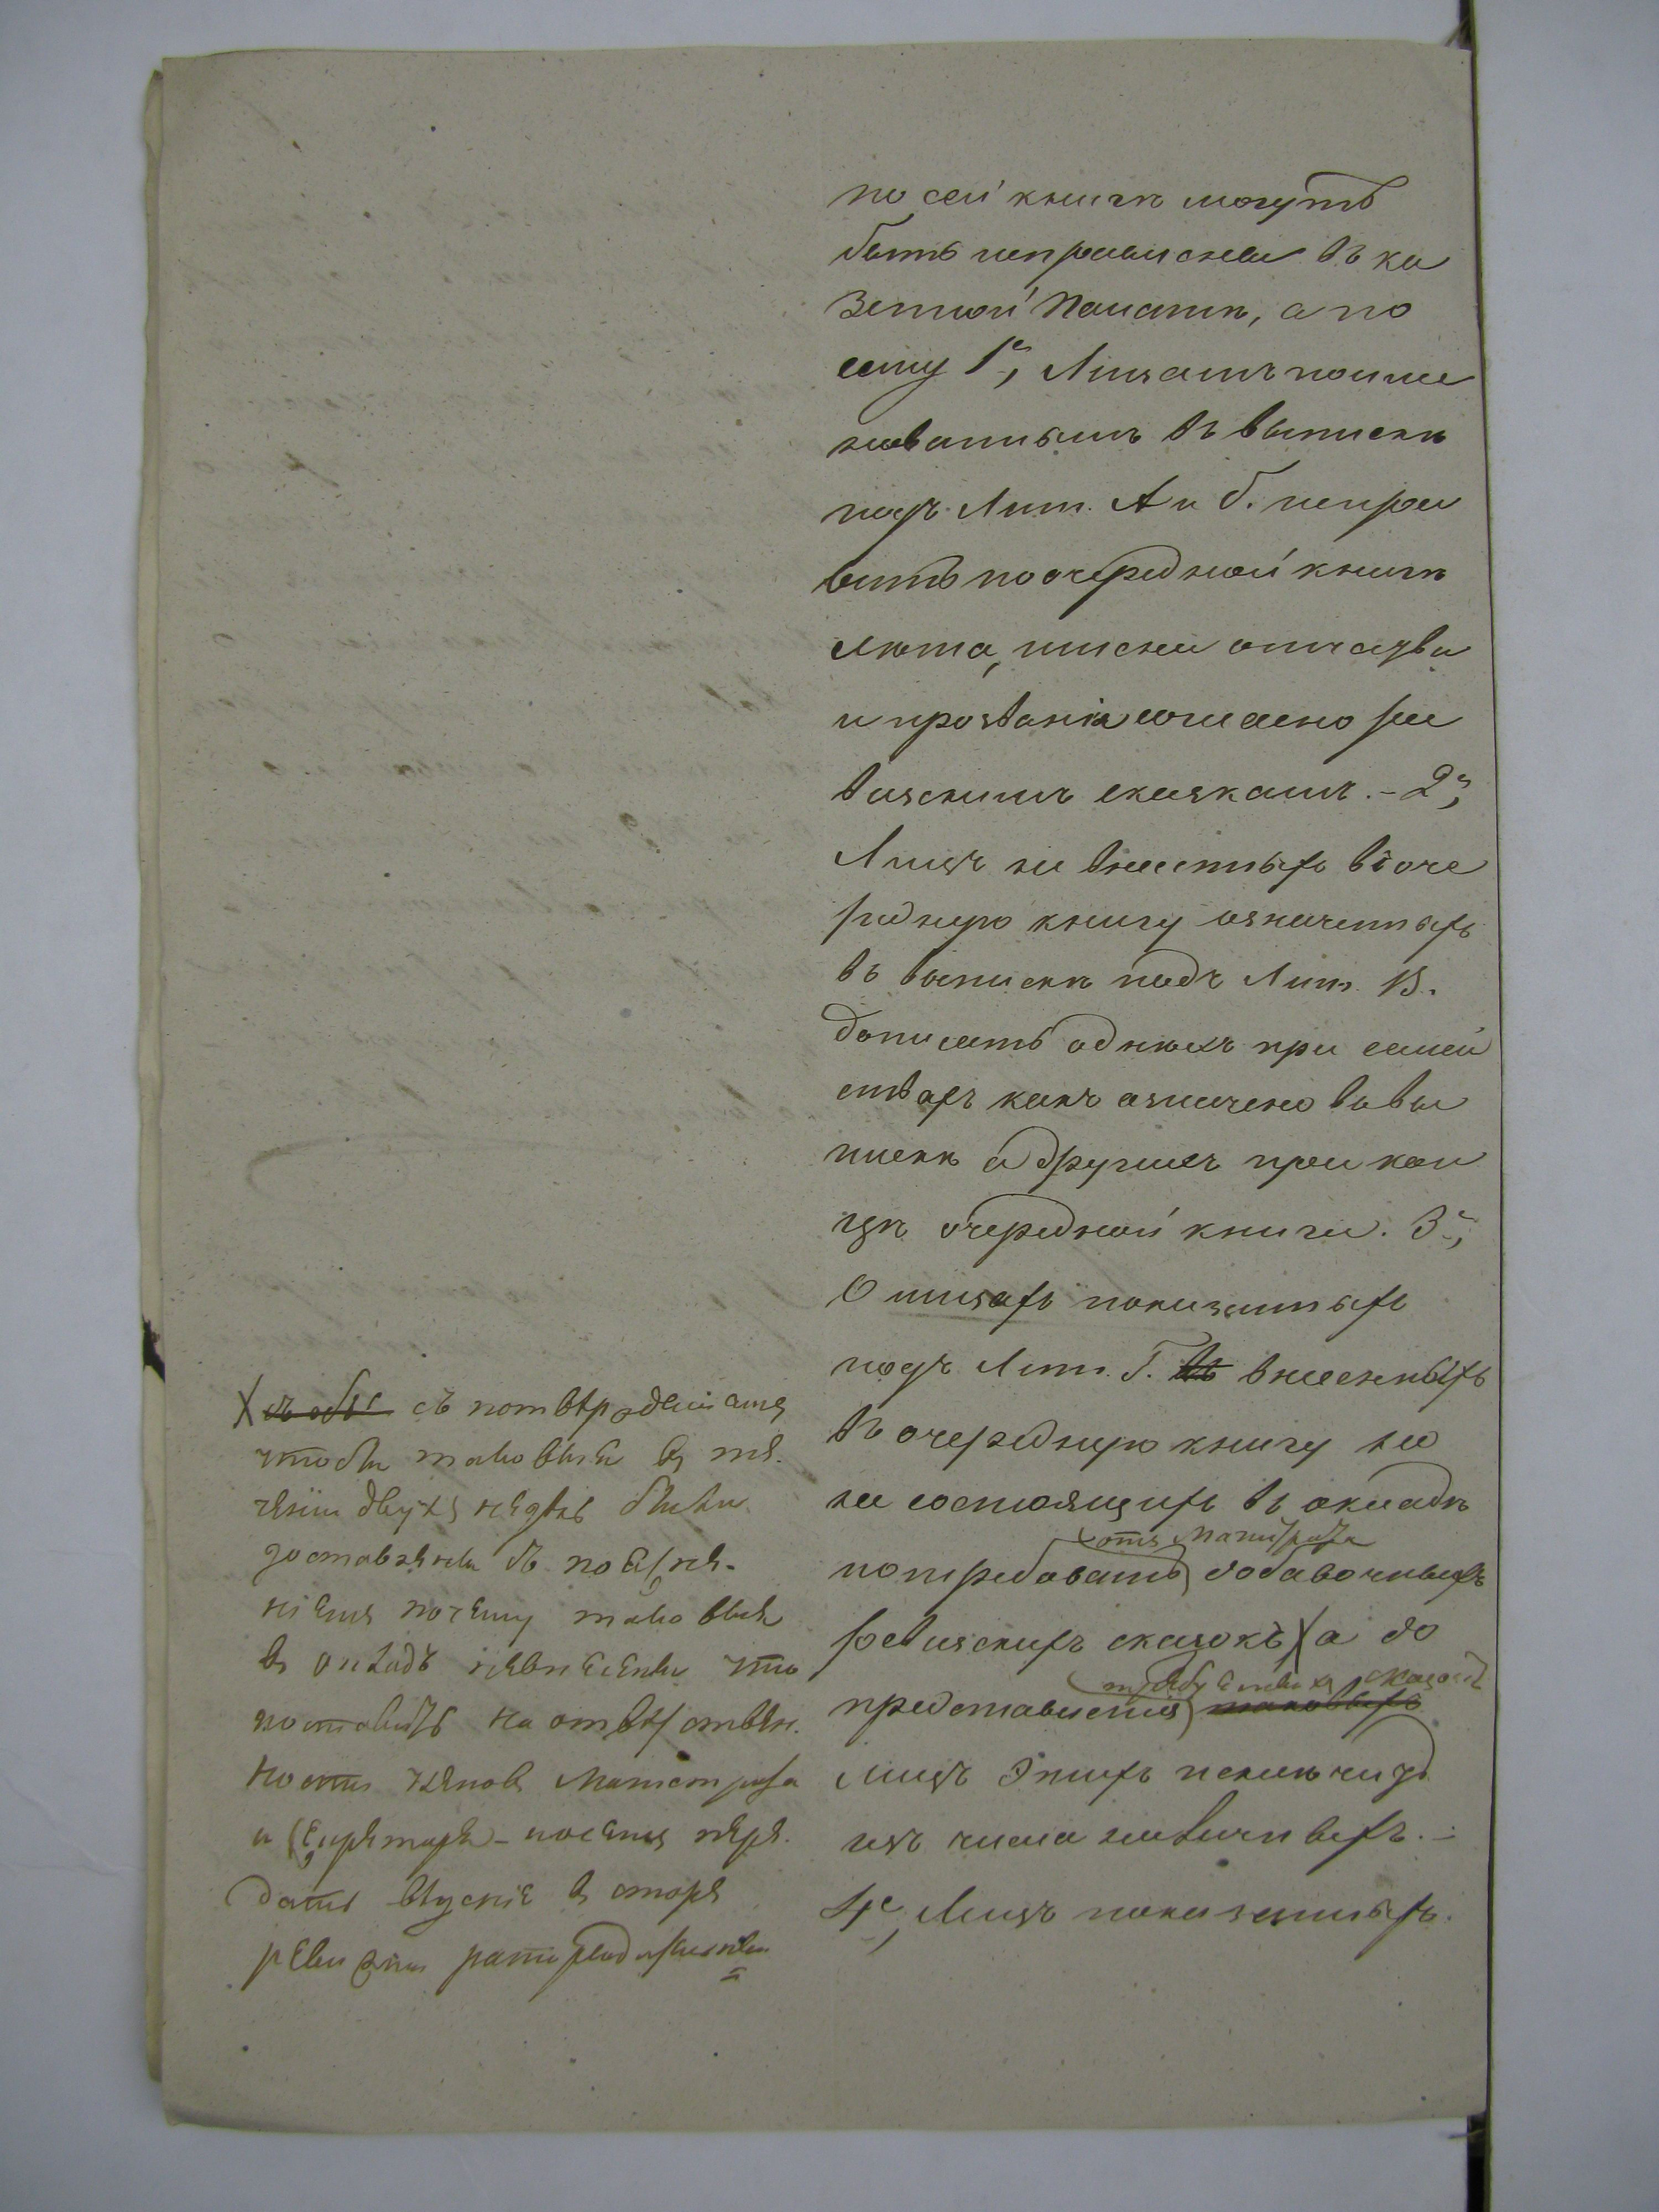 по сей книгѣ могутъ
быть исправлены въ ка
зенной Палатѣ, а по
сему 1е, Лицамъ поиме
нованнымъ въ выпискѣ
подъ Лит. А и Б. испра
вить по очередной книгѣ
лѣта, имена отчества
и прозванія согласно ре
визскимъ сказкамъ. – 2е,
Лицъ не внесенныхъ въ оче
редную книгу означенныхъ
въ выпискѣ подъ Лит. В.
дописать однихъ при семей
ствахъ какъ означено въ вы
пискѣ а другихъ при кон
цѣ очередной книги. 3е,
О лицахъ показанныхъ
подъ Лит. Г. внесенныхъ
въ очередную книгу но
не состоящихъ въ окладѣ
отъ Магистрата
потребовать добавочныхъ
ревизскихъ сказокъ X а до
требуемыхъ сказокъ
представленія таковыхъ
лицъ этихъ исключить
изъ числа наличныхъ. –
4е, Лицъ показанныхъ
X съ подтвержденіемъ
чтобы таковыя въ те-
ченіи двухъ недѣль были
доставлены съ поясне-
ніемъ почему таковыя
въ окладъ невнесены что
поставить на отвѣтствен-
ность членовъ Магистрата
и Секретаря – посемъ пере-
дать въ
ревизіи